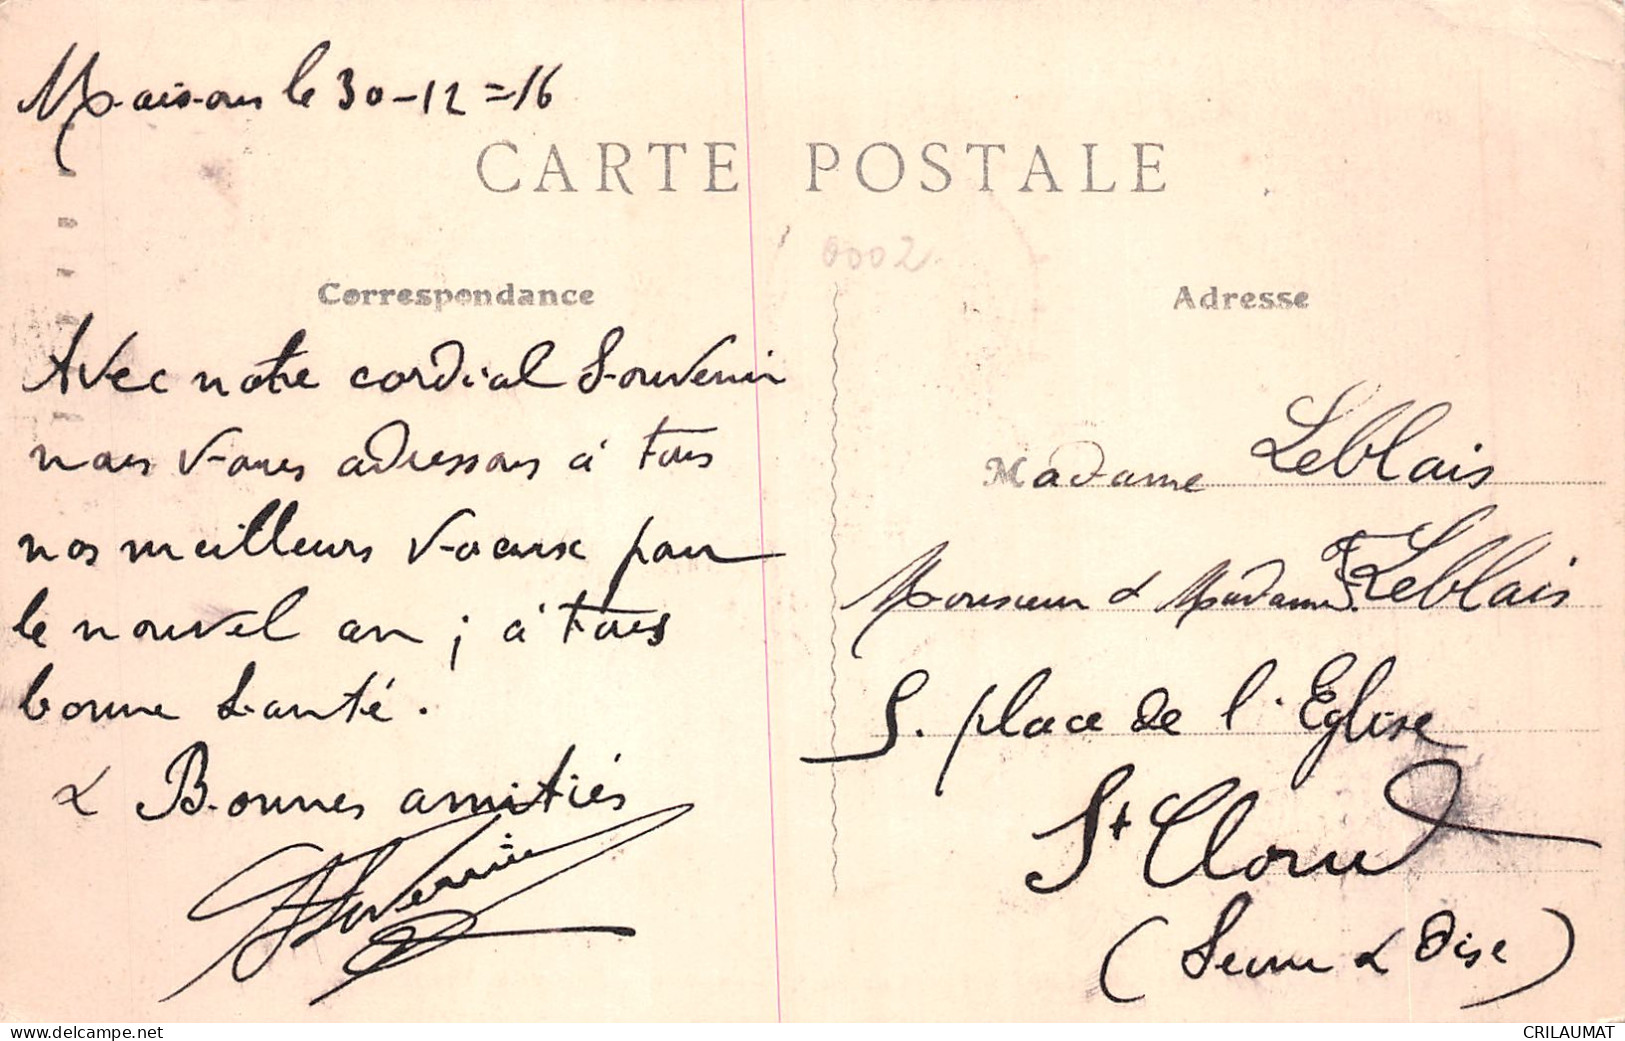 Maisons le 30-12=16
CARTE POSTALE
0002
Correspondance
Adresse
Avec notre cordial Souvenir
nous vous adressons à tous
nos meilleurs voeux pour
le nouvel an ; à tous
bonne santé.
& Bonnes amitiés
Madame Leblais
Monsieur & Madame F. Leblais
5. place de l'Eglise
St Cloud
(Seine & Oise)
www.delcampe.net
CRILAUMAT